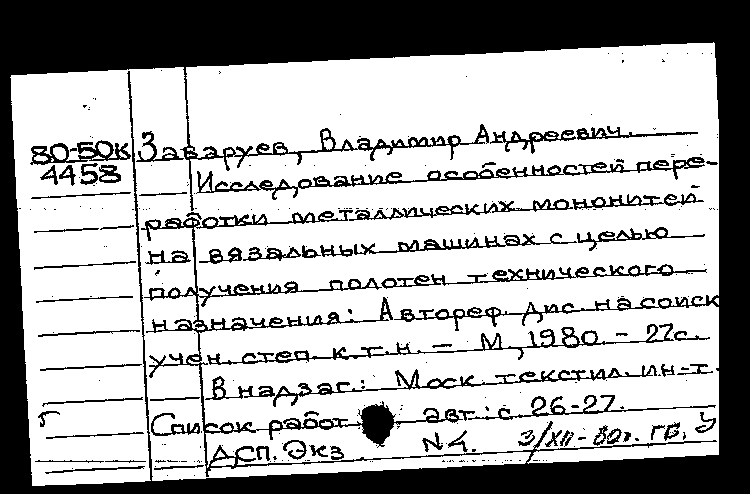 80-50К Заваруев, Владимир Андреевич.
4458 Исследование особенностей пере-
работки металлических мононитей
на вязальных машинах с целью
получения полотен технического
назначения: Автореф. дис. на соиск
учен. степ. к.т.н. – М, 1980. – 27с.
В надзаг.: Моск. текстил. ин-т.
Список работ авт.: с. 26-27.
ДСП. Экз. N4. 3/XII-80г. ГБ. У